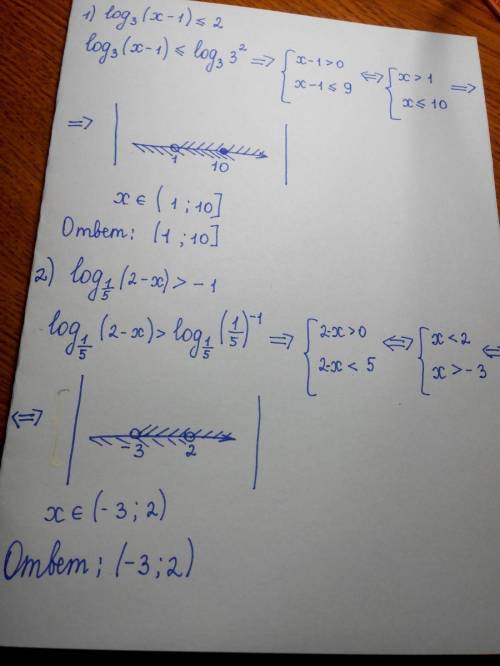 1) log₃(x-1) ≤ 2
log₃(x-1) ≤ log₃3² => { x-1>0 x-1≤9 <=> { x>1 x≤10 =>
=>
1 10
x ∈ (1 ; 10]
Ответ: (1 ; 10]
2) log_{1/5}(2-x) > -1
log_{1/5}(2-x) > log_{1/5}(1/5)⁻¹ => { 2-x>0 2-x<5 <=> { x<2 x>-3 <=
<=>
-3 2
x ∈ (-3 ; 2)
Ответ: (-3 ; 2)